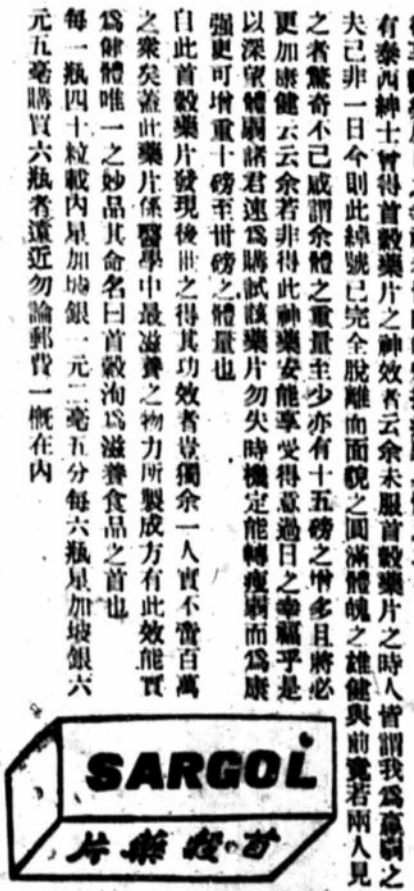 有泰西紳士曾得首穀藥片之神效者云余未服首穀藥片之時人皆謂我爲羸弱之
夫已非一日今則此綽號已完全脫離而面貌之圓滿體魄之雄健與前竟若兩人見
之者驚奇不已咸謂余體之重量至少亦有十五磅之增多且將必
更加康健云云余若非得此神藥安能享受得意過日之幸福乎是
以深望體弱諸君速爲購試該藥片勿失時機定能轉瘦弱而爲康
强更可增重十磅至卅磅之體量也
自此首穀藥片發現後世之得其功效者豈獨余一人實不啻百萬
之衆矣蓋此藥片係醫學中最滋養之物力所製成方有此效能實
爲健體唯一之妙品其命名曰首穀洵爲滋養食品之首也
每一瓶四十粒載內星加坡銀一元二毫五分每六瓶星加坡銀六
元五毫購買六瓶者遠近勿論郵費一概在內
SARGOL
片藥穀首